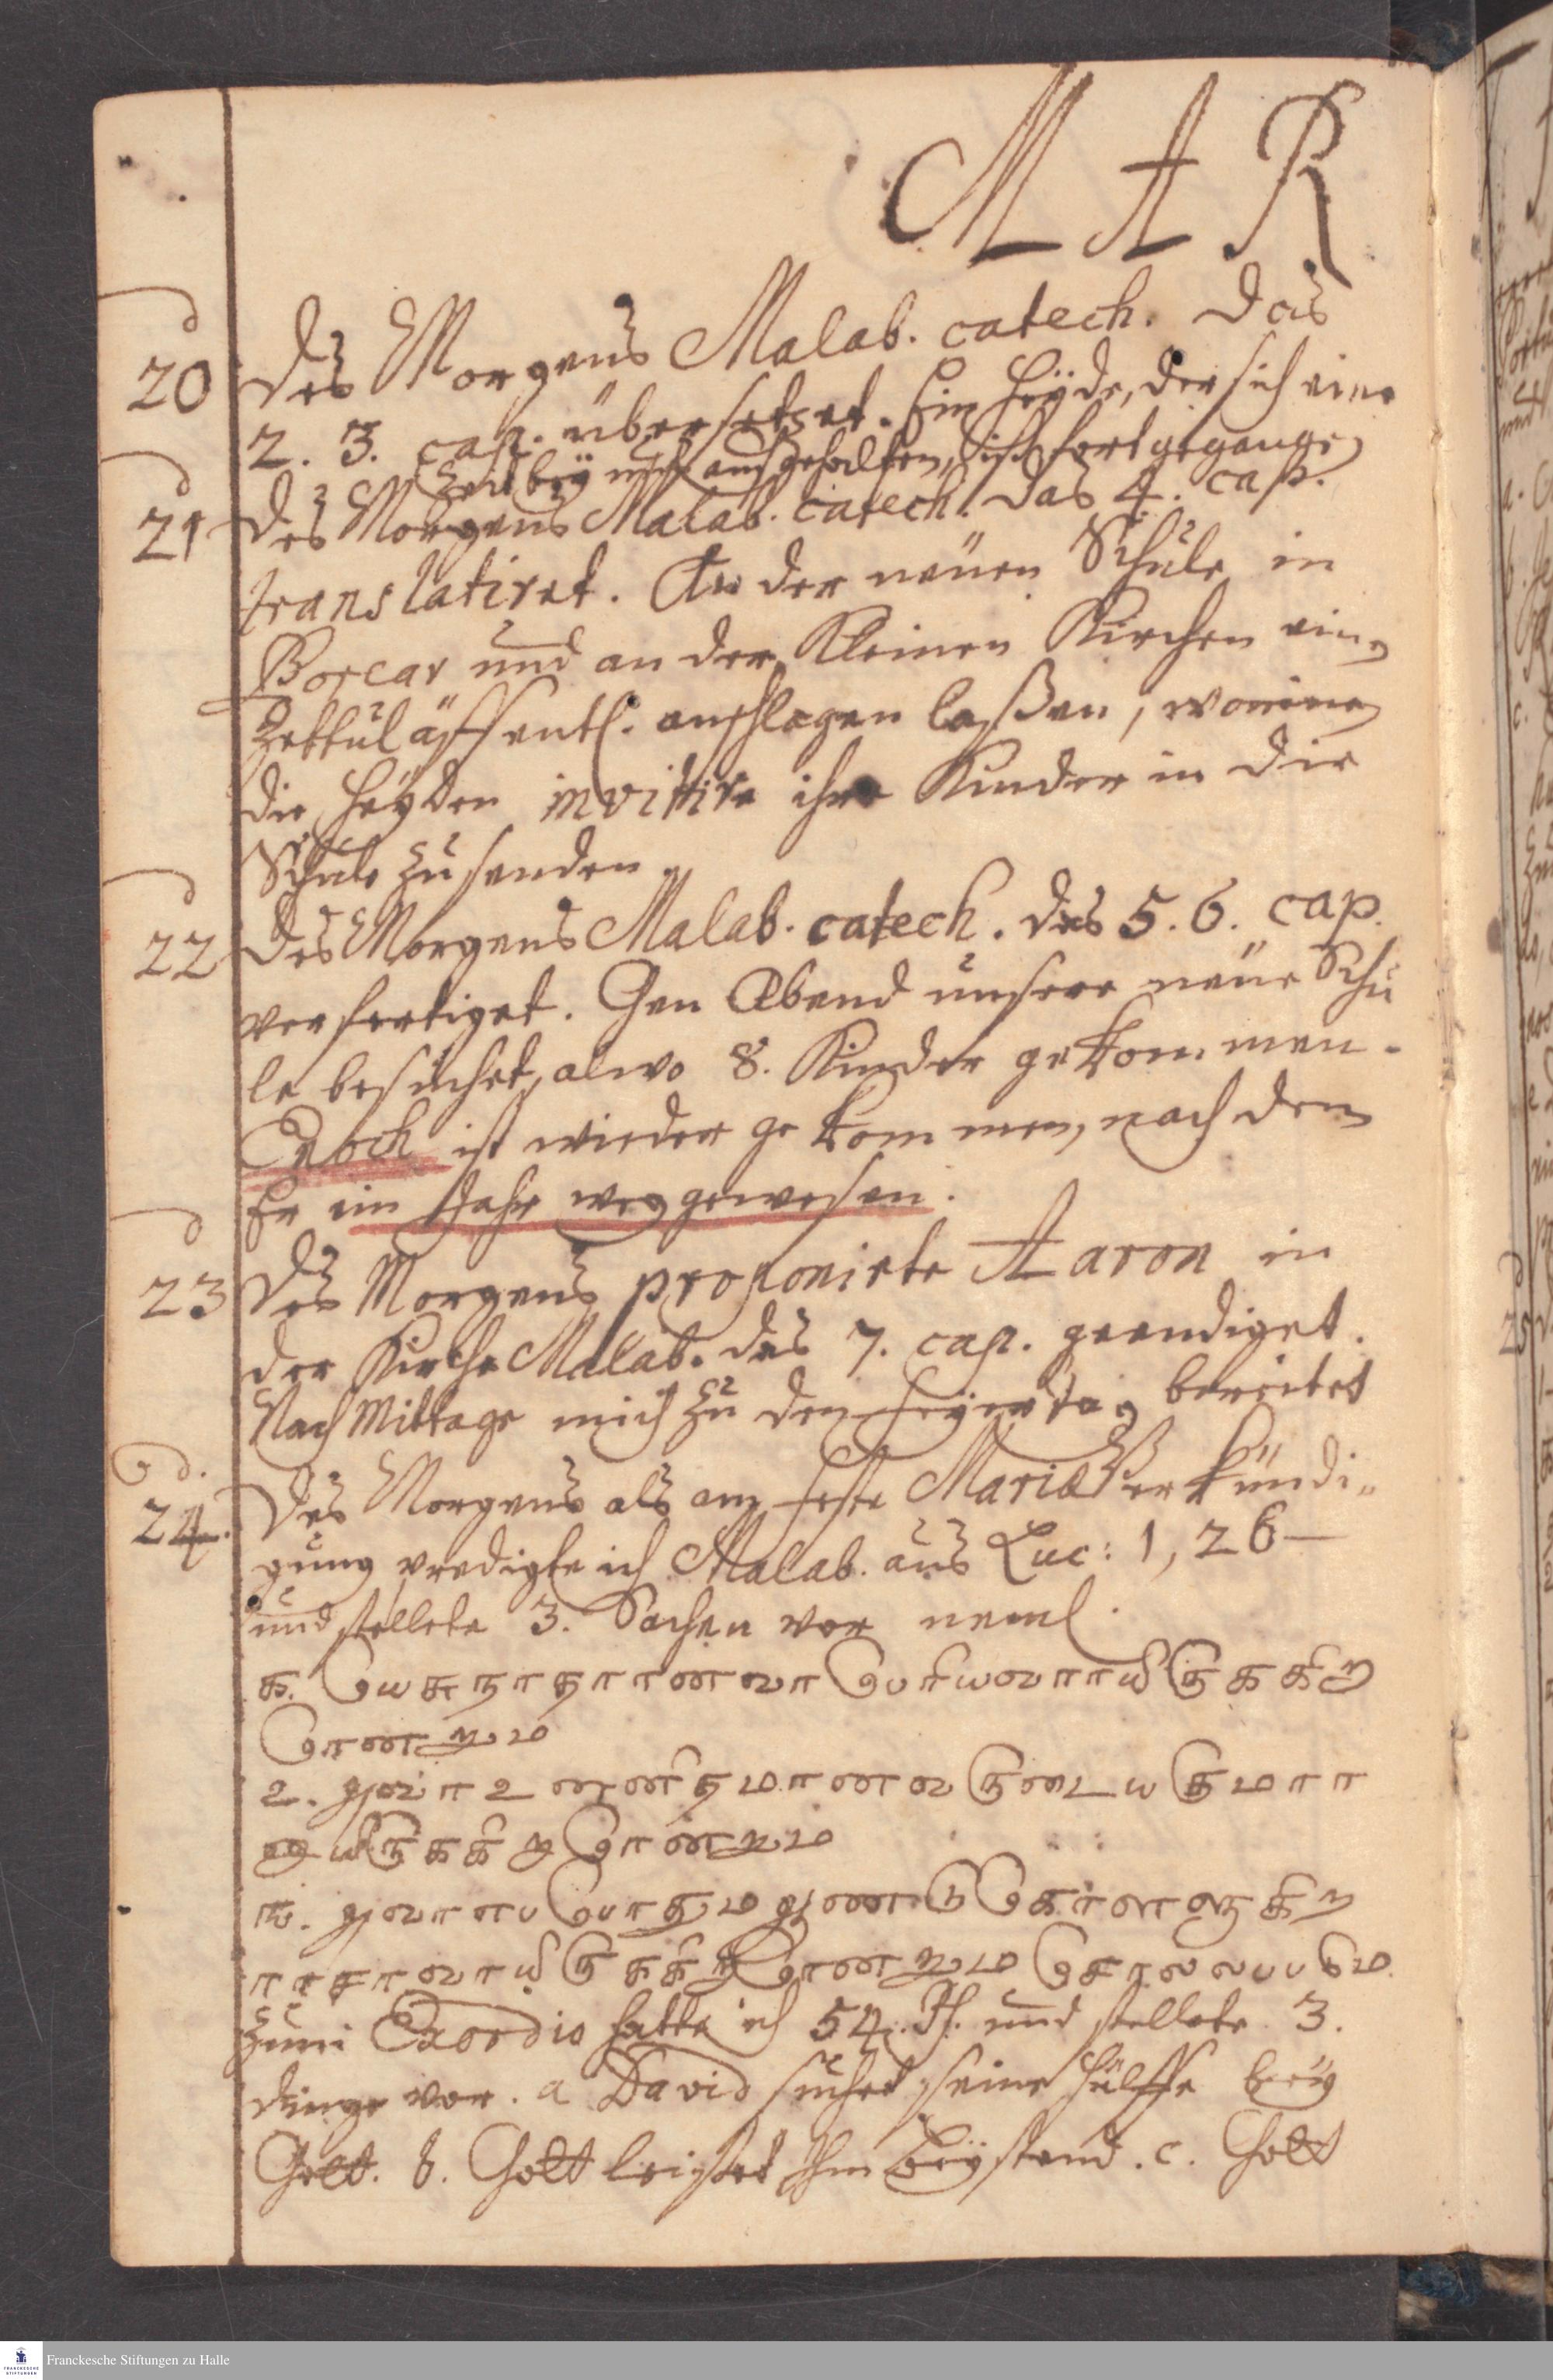 M A R
d
20 Des Morgens Malab. catech. das
2. 3. cap. übersetzet. Ein Heyde, der sich eine
Zeit bey aufgehalten, ist fortgegangen
d
21 Des Morgens Malab. catech. das 4. cap.
translatiret. An der neuen Schule in
Borear und an der Kleinen Kirchen einen
Zettul äffentl. anschlagen laßen, worinne
die Heyden invitire ihre Kinder in die
Schule zu senden.
d
22 Des Morgens Malab. catech. das 5. 6. cap.
verfertiget. Gen Abend unsere neue Schu
le besuchet, alwo 8. Kinder gekommen.
Enoch ist wieder gekommen, nach dem
Er ein Jahr weg gewesen.
d
23 Des Morgens proponirte Aaron in
der Kirche Malab. das 7. cap. geendiget.
Nach Mittage mich zu den Feyertag bereitet
d.
24. Des Morgens als am Feste Mariæ Verkündi-
gung predigte ich Malab. aus Luc: 1, 26 –
und stellete 3. Sachen vor neml.
க. யெசுநாதரானவர பெரியவராயிருககிற
ாரெனறும
உ. அவர உனனிதமானவருடையகுமார
னாயிருககிறாரெனறும
௩. அவரைபபொதும
ராசாவாயிருககிறாரெனறும சொலலபபடும
Zum Exordio hatte ich 54. Ps. und stellete 3.
dinge vor. a David suchet seine Hülffe bey
Gott. b. Gott leistet Ihm Beystand. c. Gott
Franckesche Stiftungen zu Halle
FRANCKESCHE
STIFTUNGEN